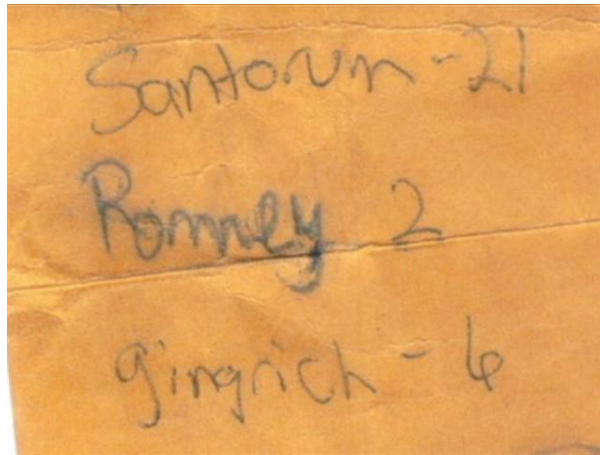 Santorum - 21
Romney 2
gingrich - 6